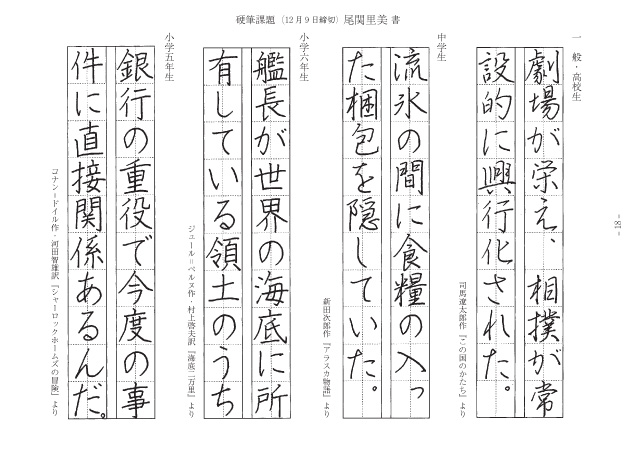 硬筆課題（12月9日締切）尾関里美 書
一般・高校生
劇場が栄え、相撲が常
設的に興行化された。
司馬遼太郎作『この国のかたち』より
中学生
流氷の間に食糧の入っ
た梱包を隠していた。
新田次郎作『アラスカ物語』より
小学六年生
艦長が世界の海底に所
有している領土のうち
ジュール＝ベルヌ作・村上啓夫訳『海底二万里』より
小学五年生
銀行の重役で今度の事
件に直接関係あるんだ。
コナン＝ドイル作・河田智雄訳『シャーロックホームズの冒険』より